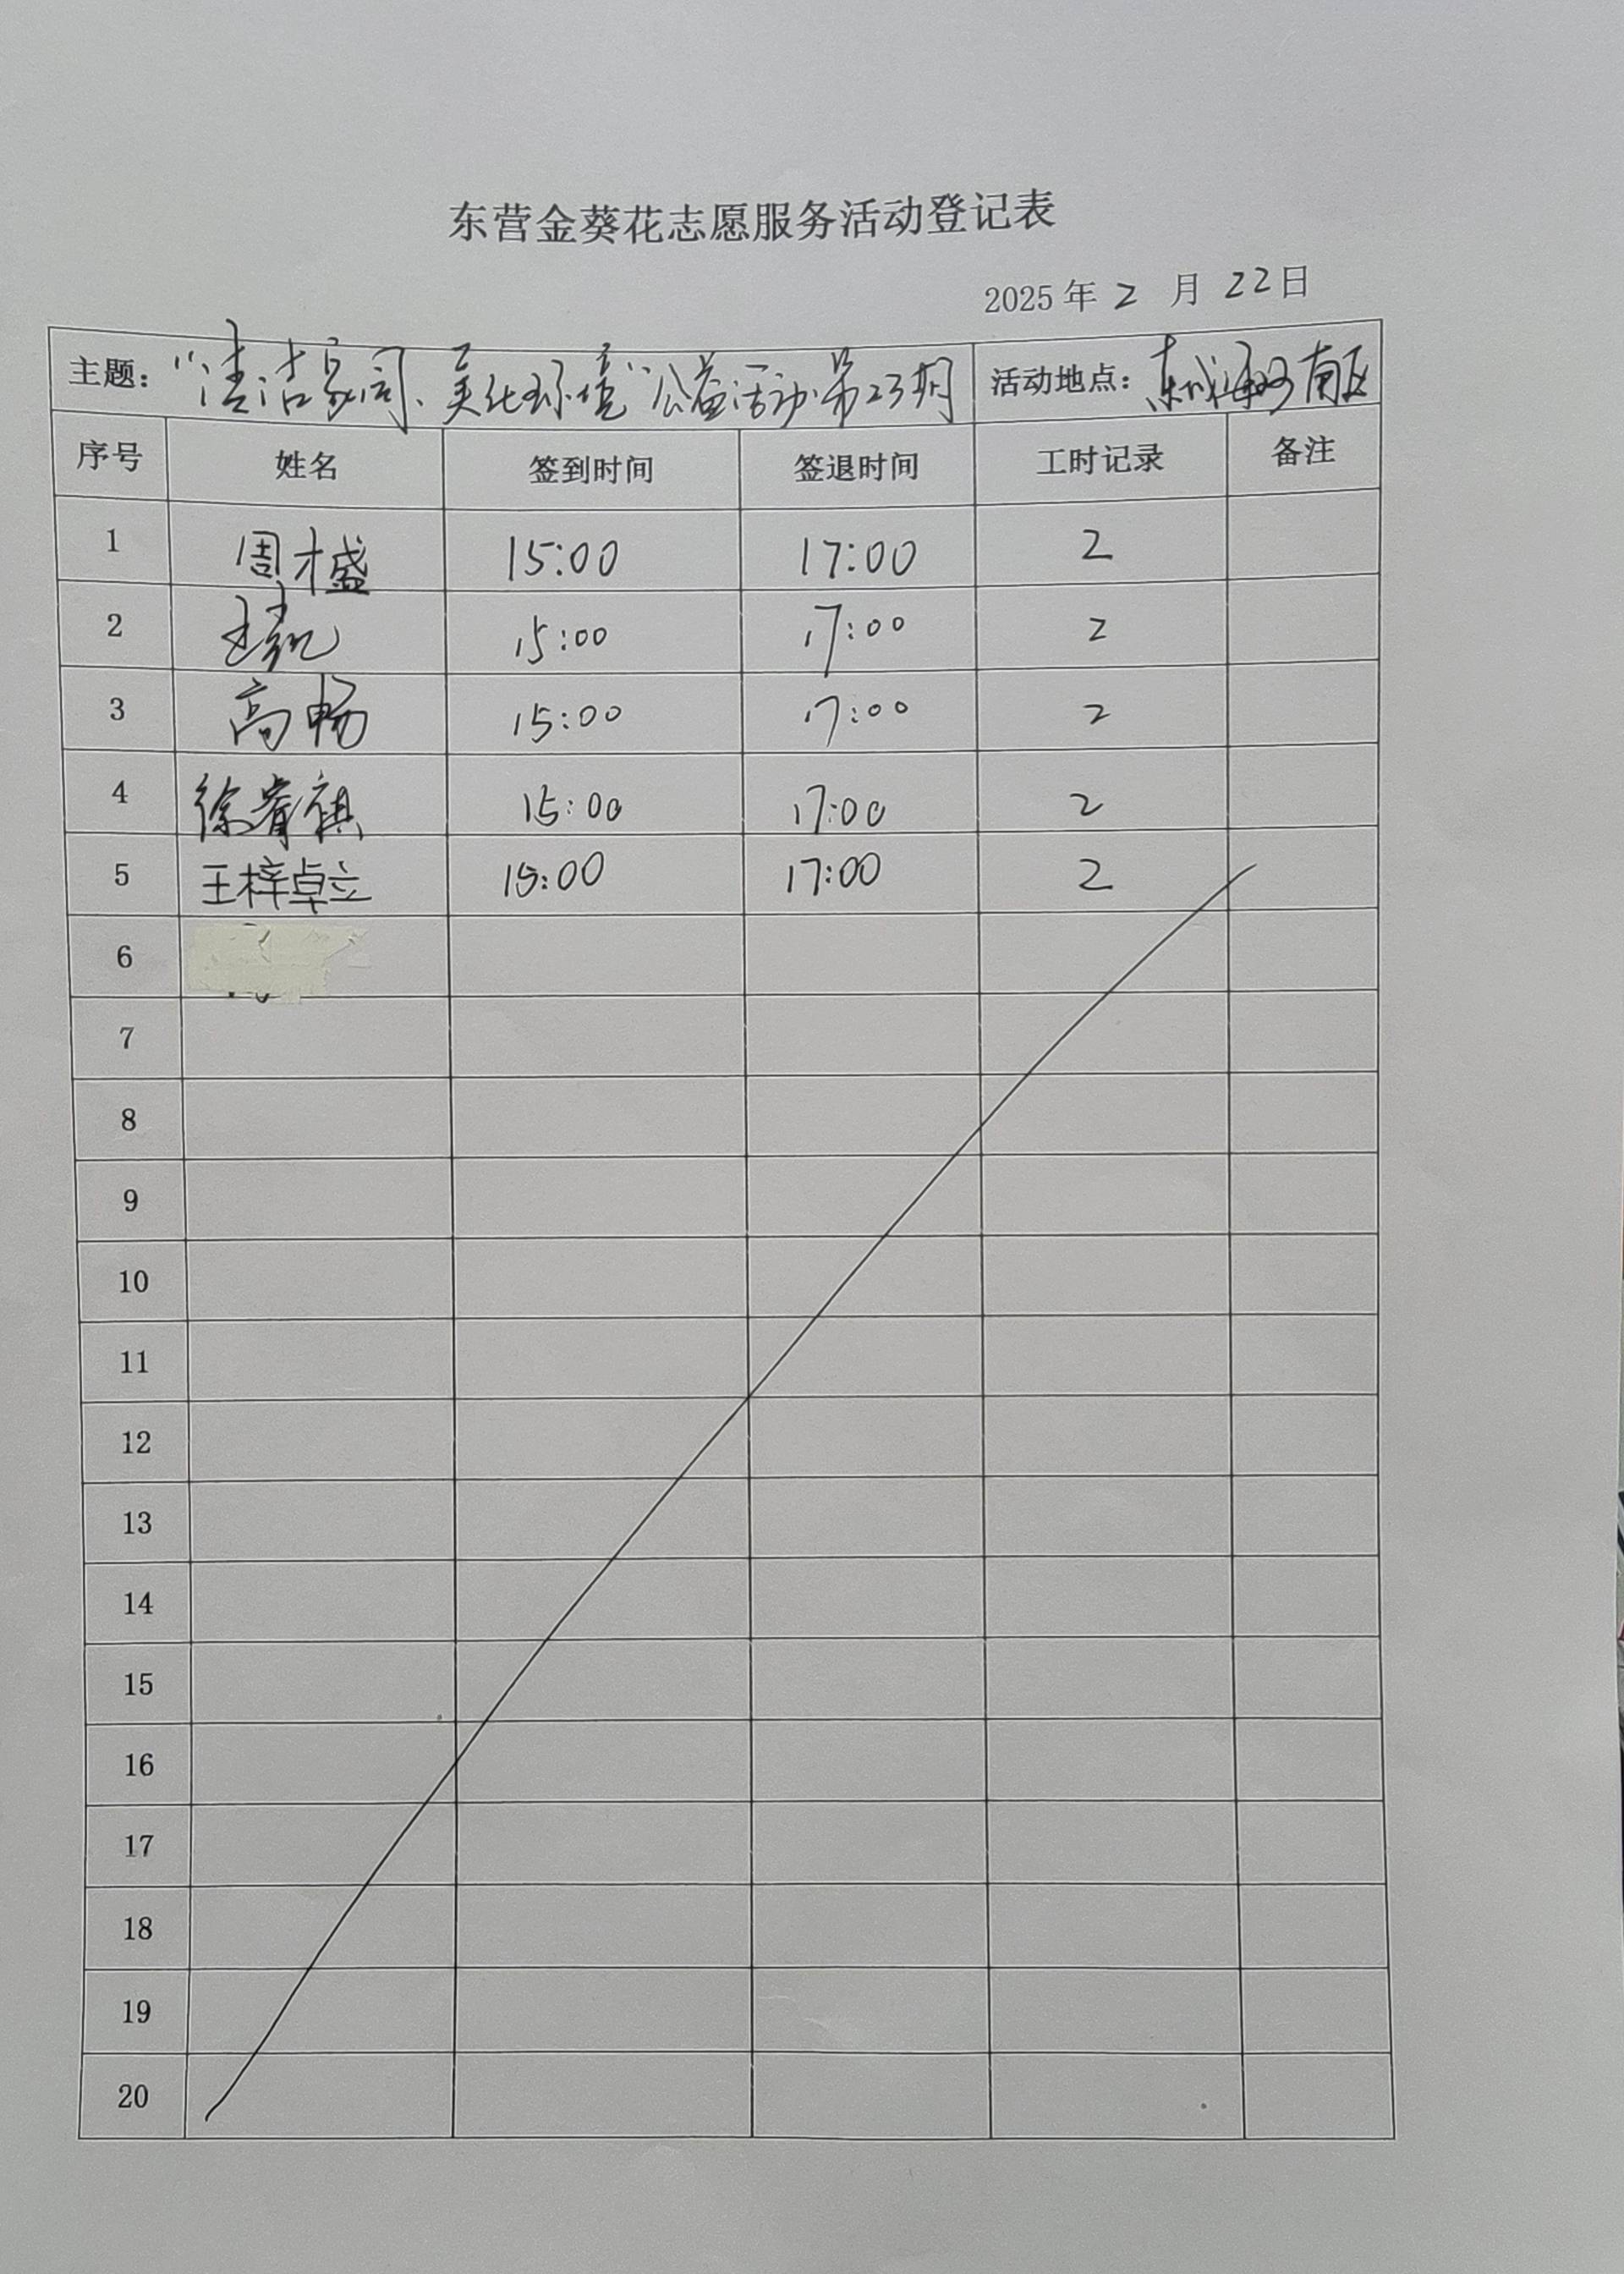 东营金葵花志愿服务活动登记表
2025年 2 月 22日
主题：“清洁家园、美化环境”公益活动第23期 活动地点：东城 南区
序号 姓名 签到时间 签退时间 工时记录 备注
1 周才盛 15:00 17:00 2
2 15:00 17:00 2
3 高畅 15:00 17:00 2
4 徐睿祺 15:00 17:00 2
5 王梓卓立 15:00 17:00 2
6
7
8
9
10
11
12
13
14
15
16
17
18
19
20